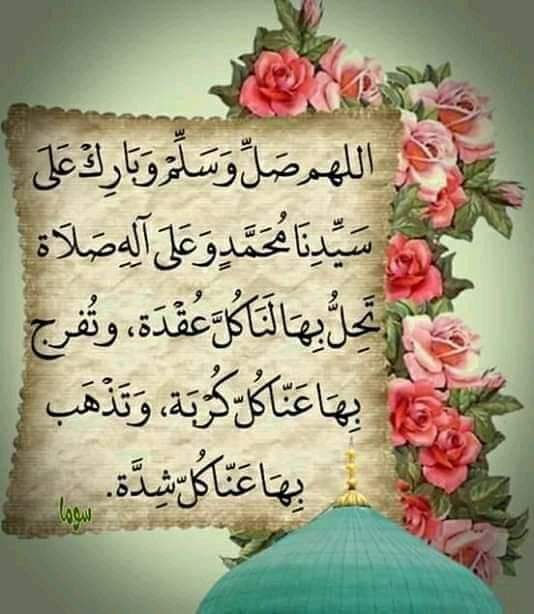 اللهم صَلِّ وَسَلِّمْ وَبَارِكْ عَلَى
سَيِّدِنَا مُحَمَّدٍ وَعَلَى آلِهِ صَلَاة
تَحِلُّ بِهَا لَنَا كُلَّ عُقْدَة، وتُفرج
بِهَا عَنَّا كُلّ كُرْبَة، وَتَذْهَب
بِهَا عَنَّا كُلّ شِدَّة.
سوما